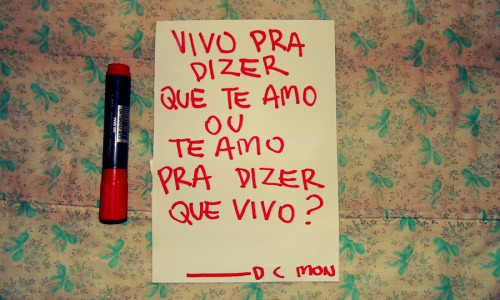 VIVO PRA
DIZER
QUE TE AMO
OU
TE AMO
PRA DIZER
QUE VIVO?
D C MON